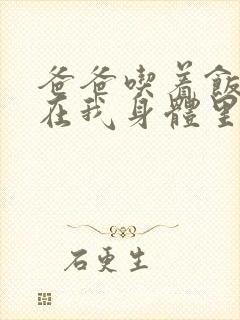 爸爸喫着飯
在我身體里
石更生